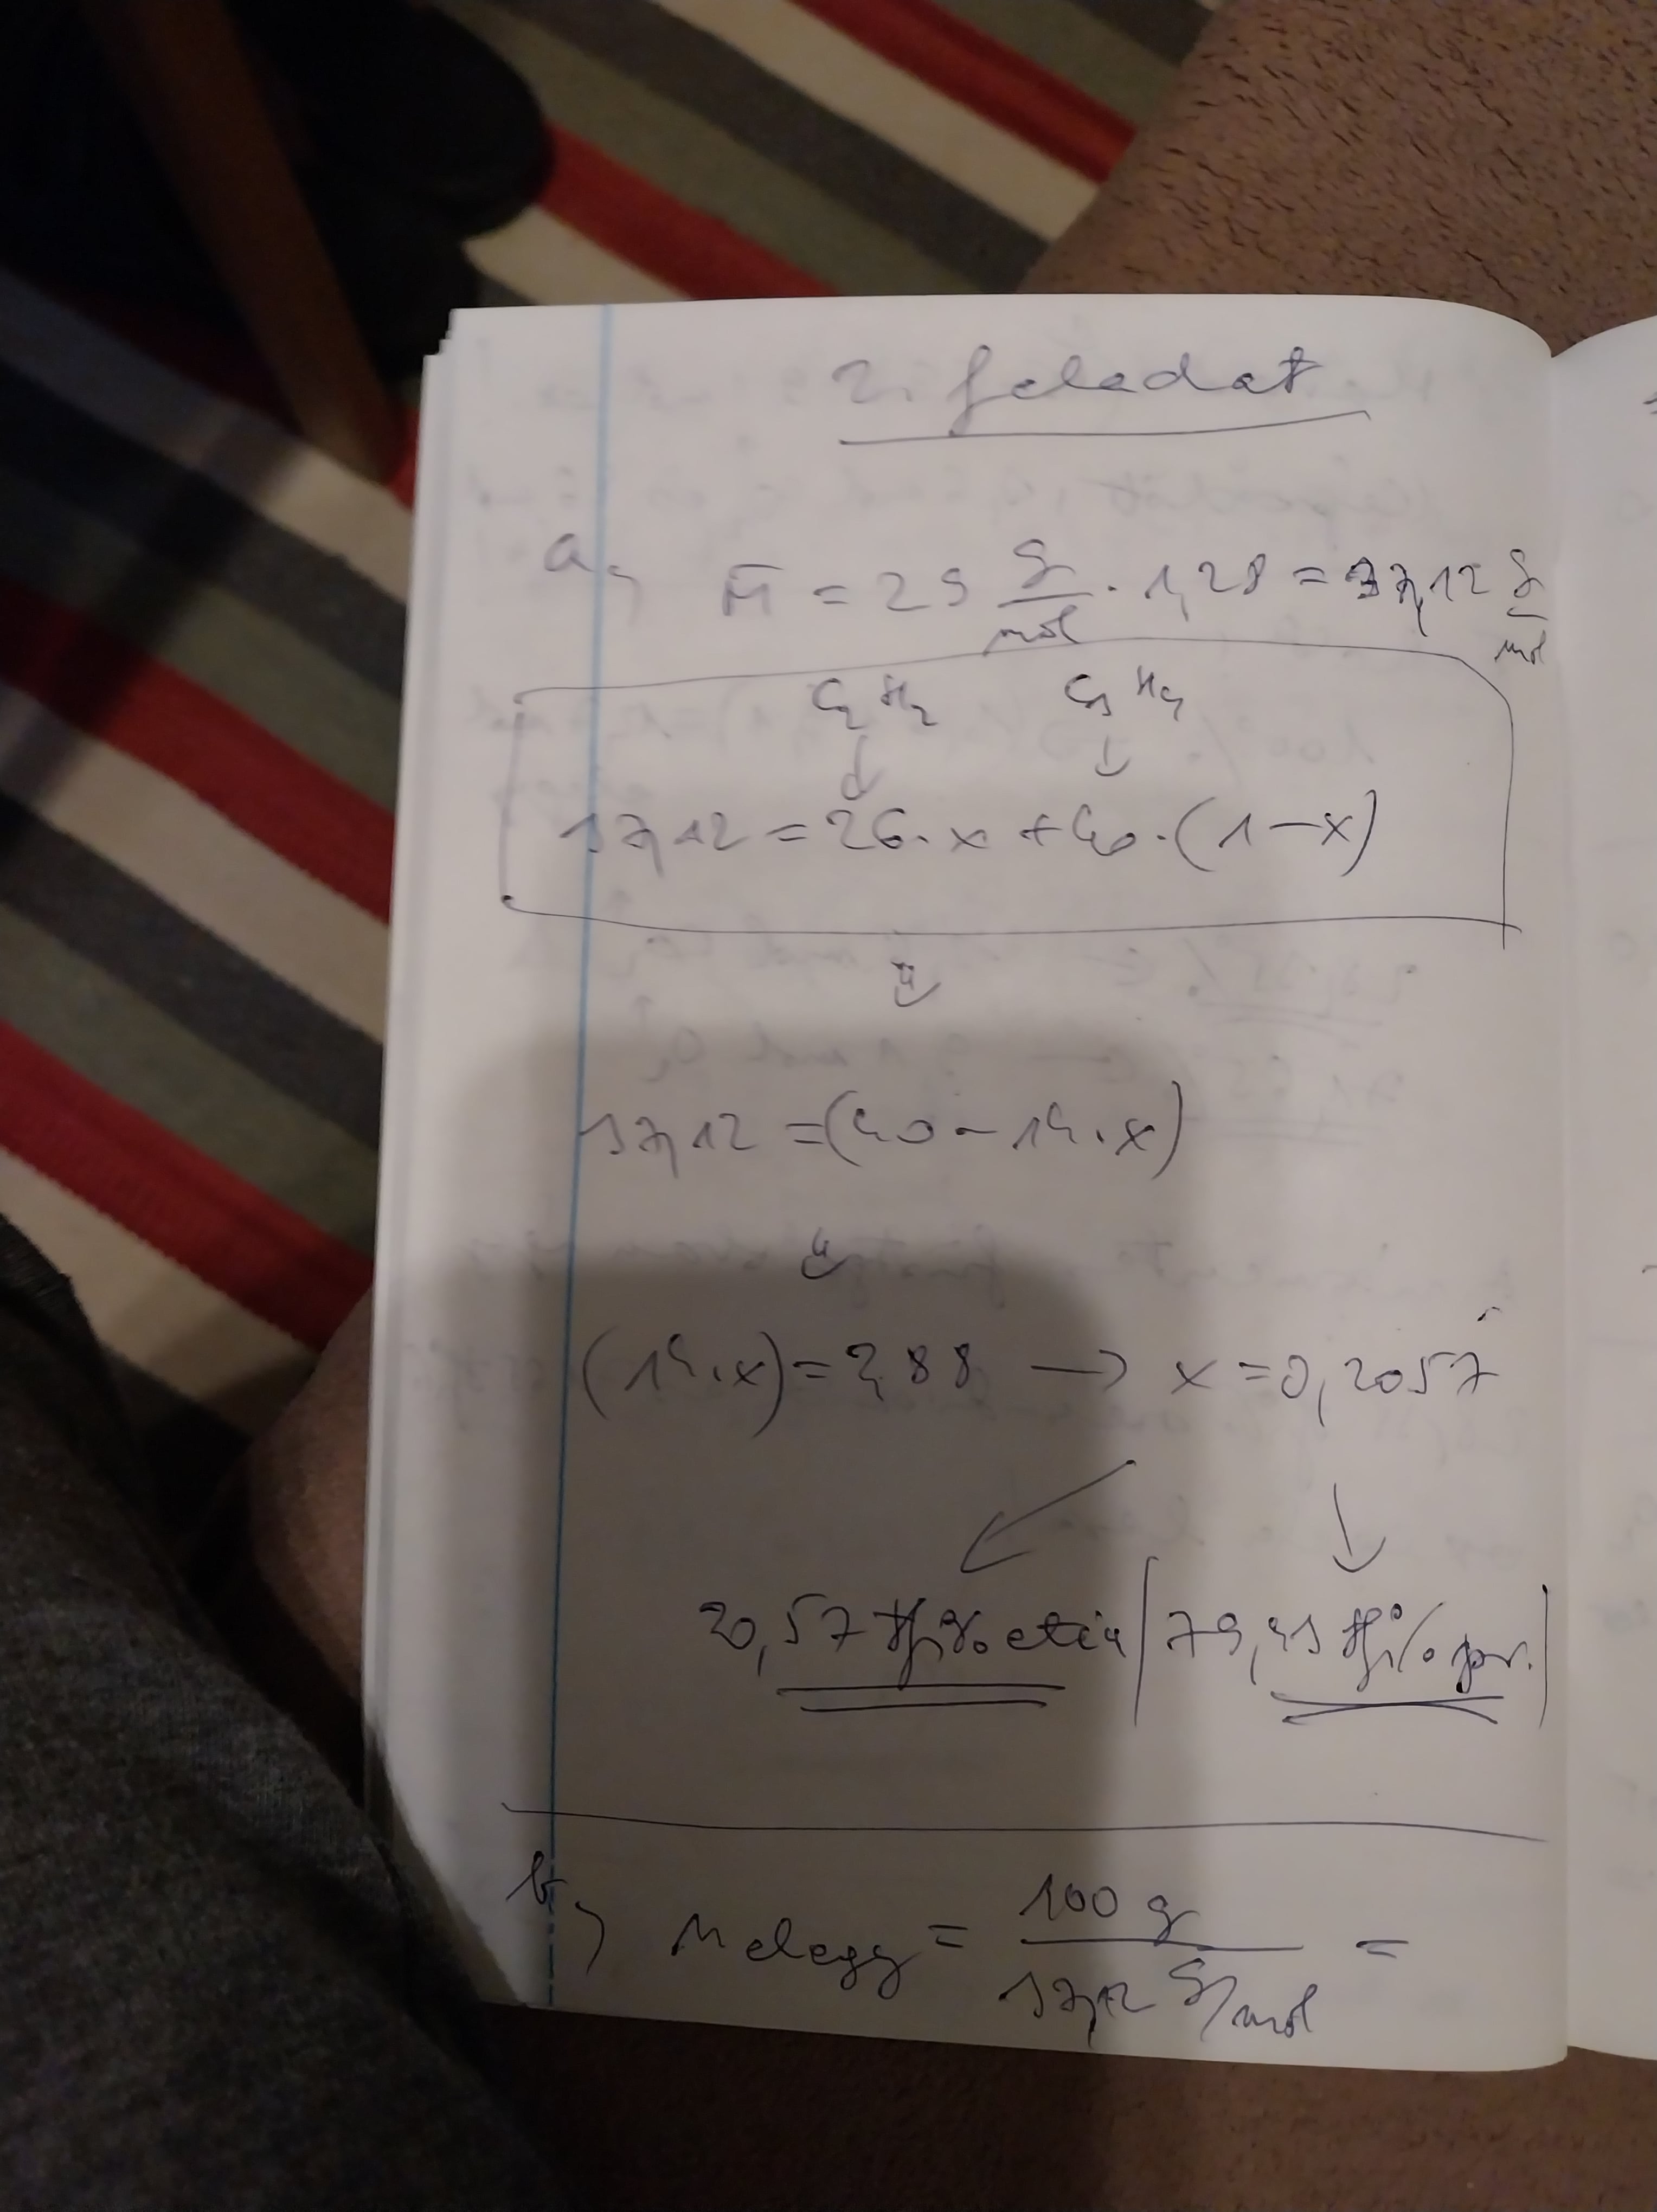 2. feladat
a, M̄ = 29 g/mol · 1,28 = 37,12 g/mol
C₂H₂ C₃H₄
↓ ↓
37,12 = 26 · x + 40 · (1 – x)
↓
37,12 = (40 – 14 · x)
↓
(14 · x) = 2,88 → x = 0,2057
20,57 tf% etin | 79,43 tf% pr. |
b, n elegy = 100 g / 37,12 g/mol =